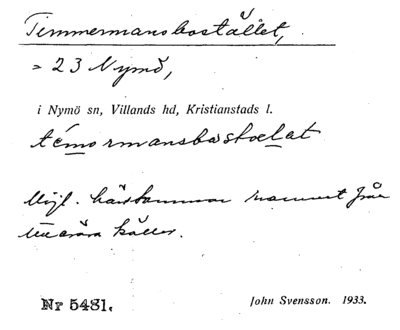 Timmermansbostället,
= 23 Nymö,
i Nymö sn, Villands hd, Kristianstads l.
témormansbostœlat
Möjl. härstammar namnet från
litterära källor.
Nr 5481.
John Svensson. 1933.